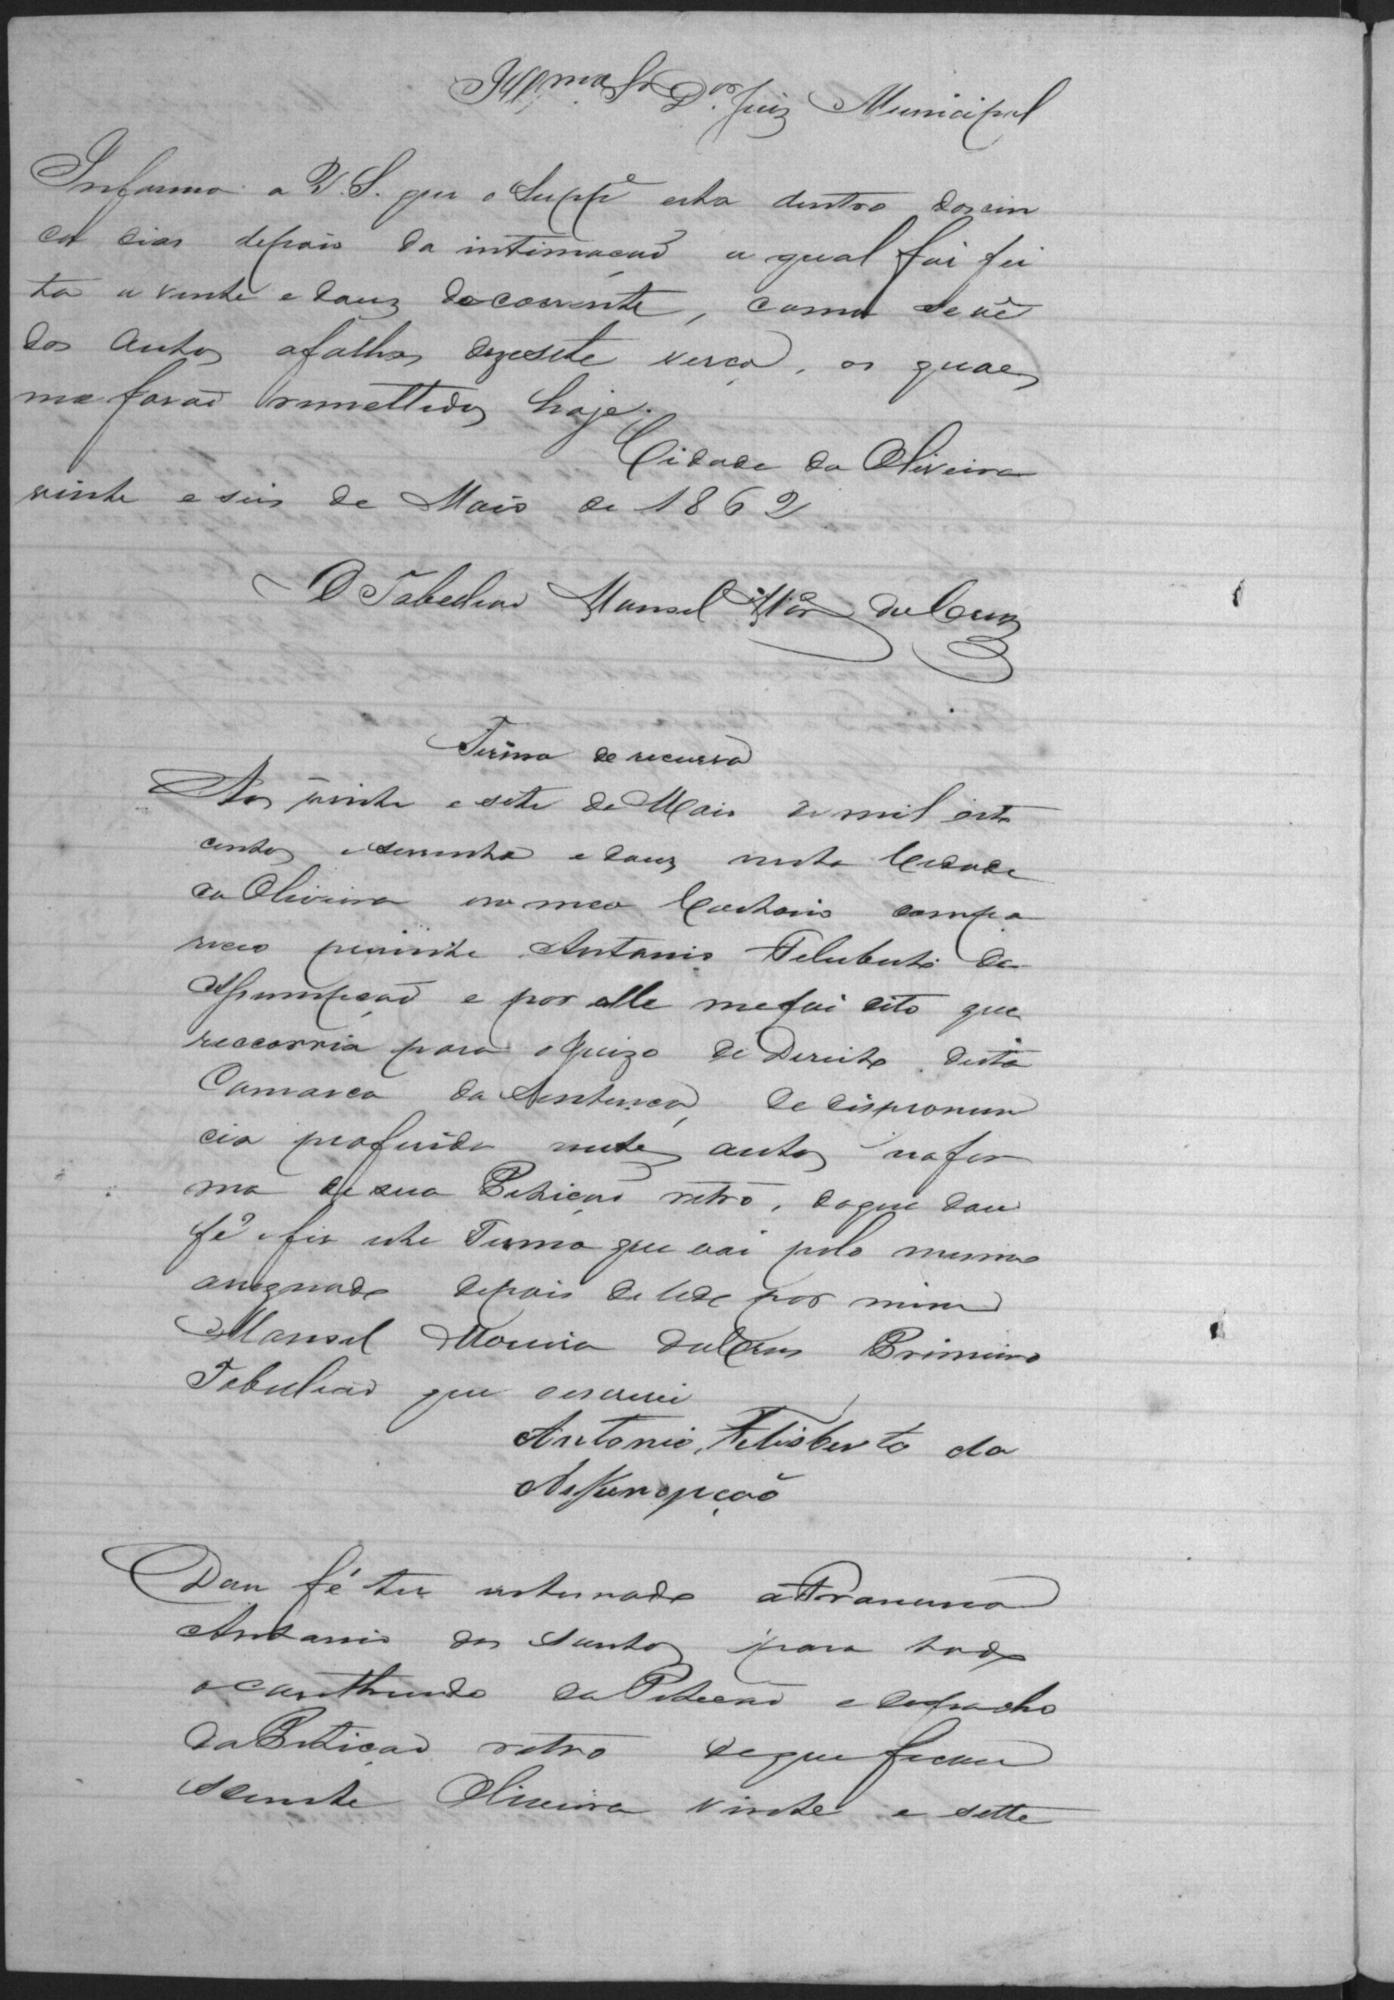 Illmo Sr Dor Juiz Municipal
Informo a V. S. que o Suppe esta dentro dos cin
co dias depois da intimação a qual foi fei
ta a vinte e douz do corrente, como se vê
dos autos afolhas dezesete verço, os quaes
me forão remettidos hoje.
Cidade da Oliveira
vinte e seis de Maio de 1862
O Tabelião Manoel Mora da Cruz
Termo de recurso
Aos vinte e sete de Maio de mil oito
centos e sesenta e douz nesta Cidade
da Oliveira em meo Cartorio compa
receo prezente Antonio Felisberto da
Assumpção e por elle me foi dito que
reccorria para o Juizo de Direito desta
Comarca da Sentença de dispronun
cia proferida nestes autos na for
ma de sua Petição retro, do que dou
fé e fiz este Termo que vai pelo mesmo
assignado depois de lido por mim
Manoel Moreira da Cruz Primeiro
Tabelião que escrevi
Antonio Felisberto da
Assumpção
Dou fé ter intimado a Francisco
Antonio dos Santos para todo
o contheudo da Petição e despacho
da Petição retro de que ficou
sciente Oliveira vinte e sette